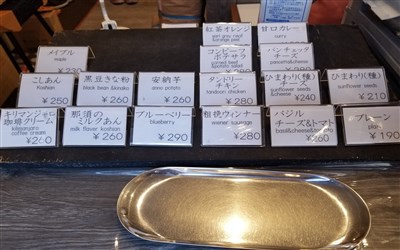 紅茶オレンジ
甘口カレー
curry
メイプル
maple
230
コンビーフ
ポテサラ
パンチェッタ
チーズ
こしあん
Koshian
¥250
黒豆きな粉
black bean &kinako
¥260
安納芋
anno potato
¥260
タンドリー
チキン
tandoori chicken
¥280
ひまわり(種)
チーズ
sunflower seeds
¥240
ひまわり(種)
sunflower seeds
¥210
キリマンジャロ
珈琲クリーム
kilimanjaro
coffee cream
¥260
那須の
ミルクあん
milk flavor koshian
¥260
ブルーベリー
blueberry
¥290
粗挽ウィンナー
wiener sausage
¥280
バジル
チーズ&トマト
basil&cheese&tomato
プレーン
plain
¥190